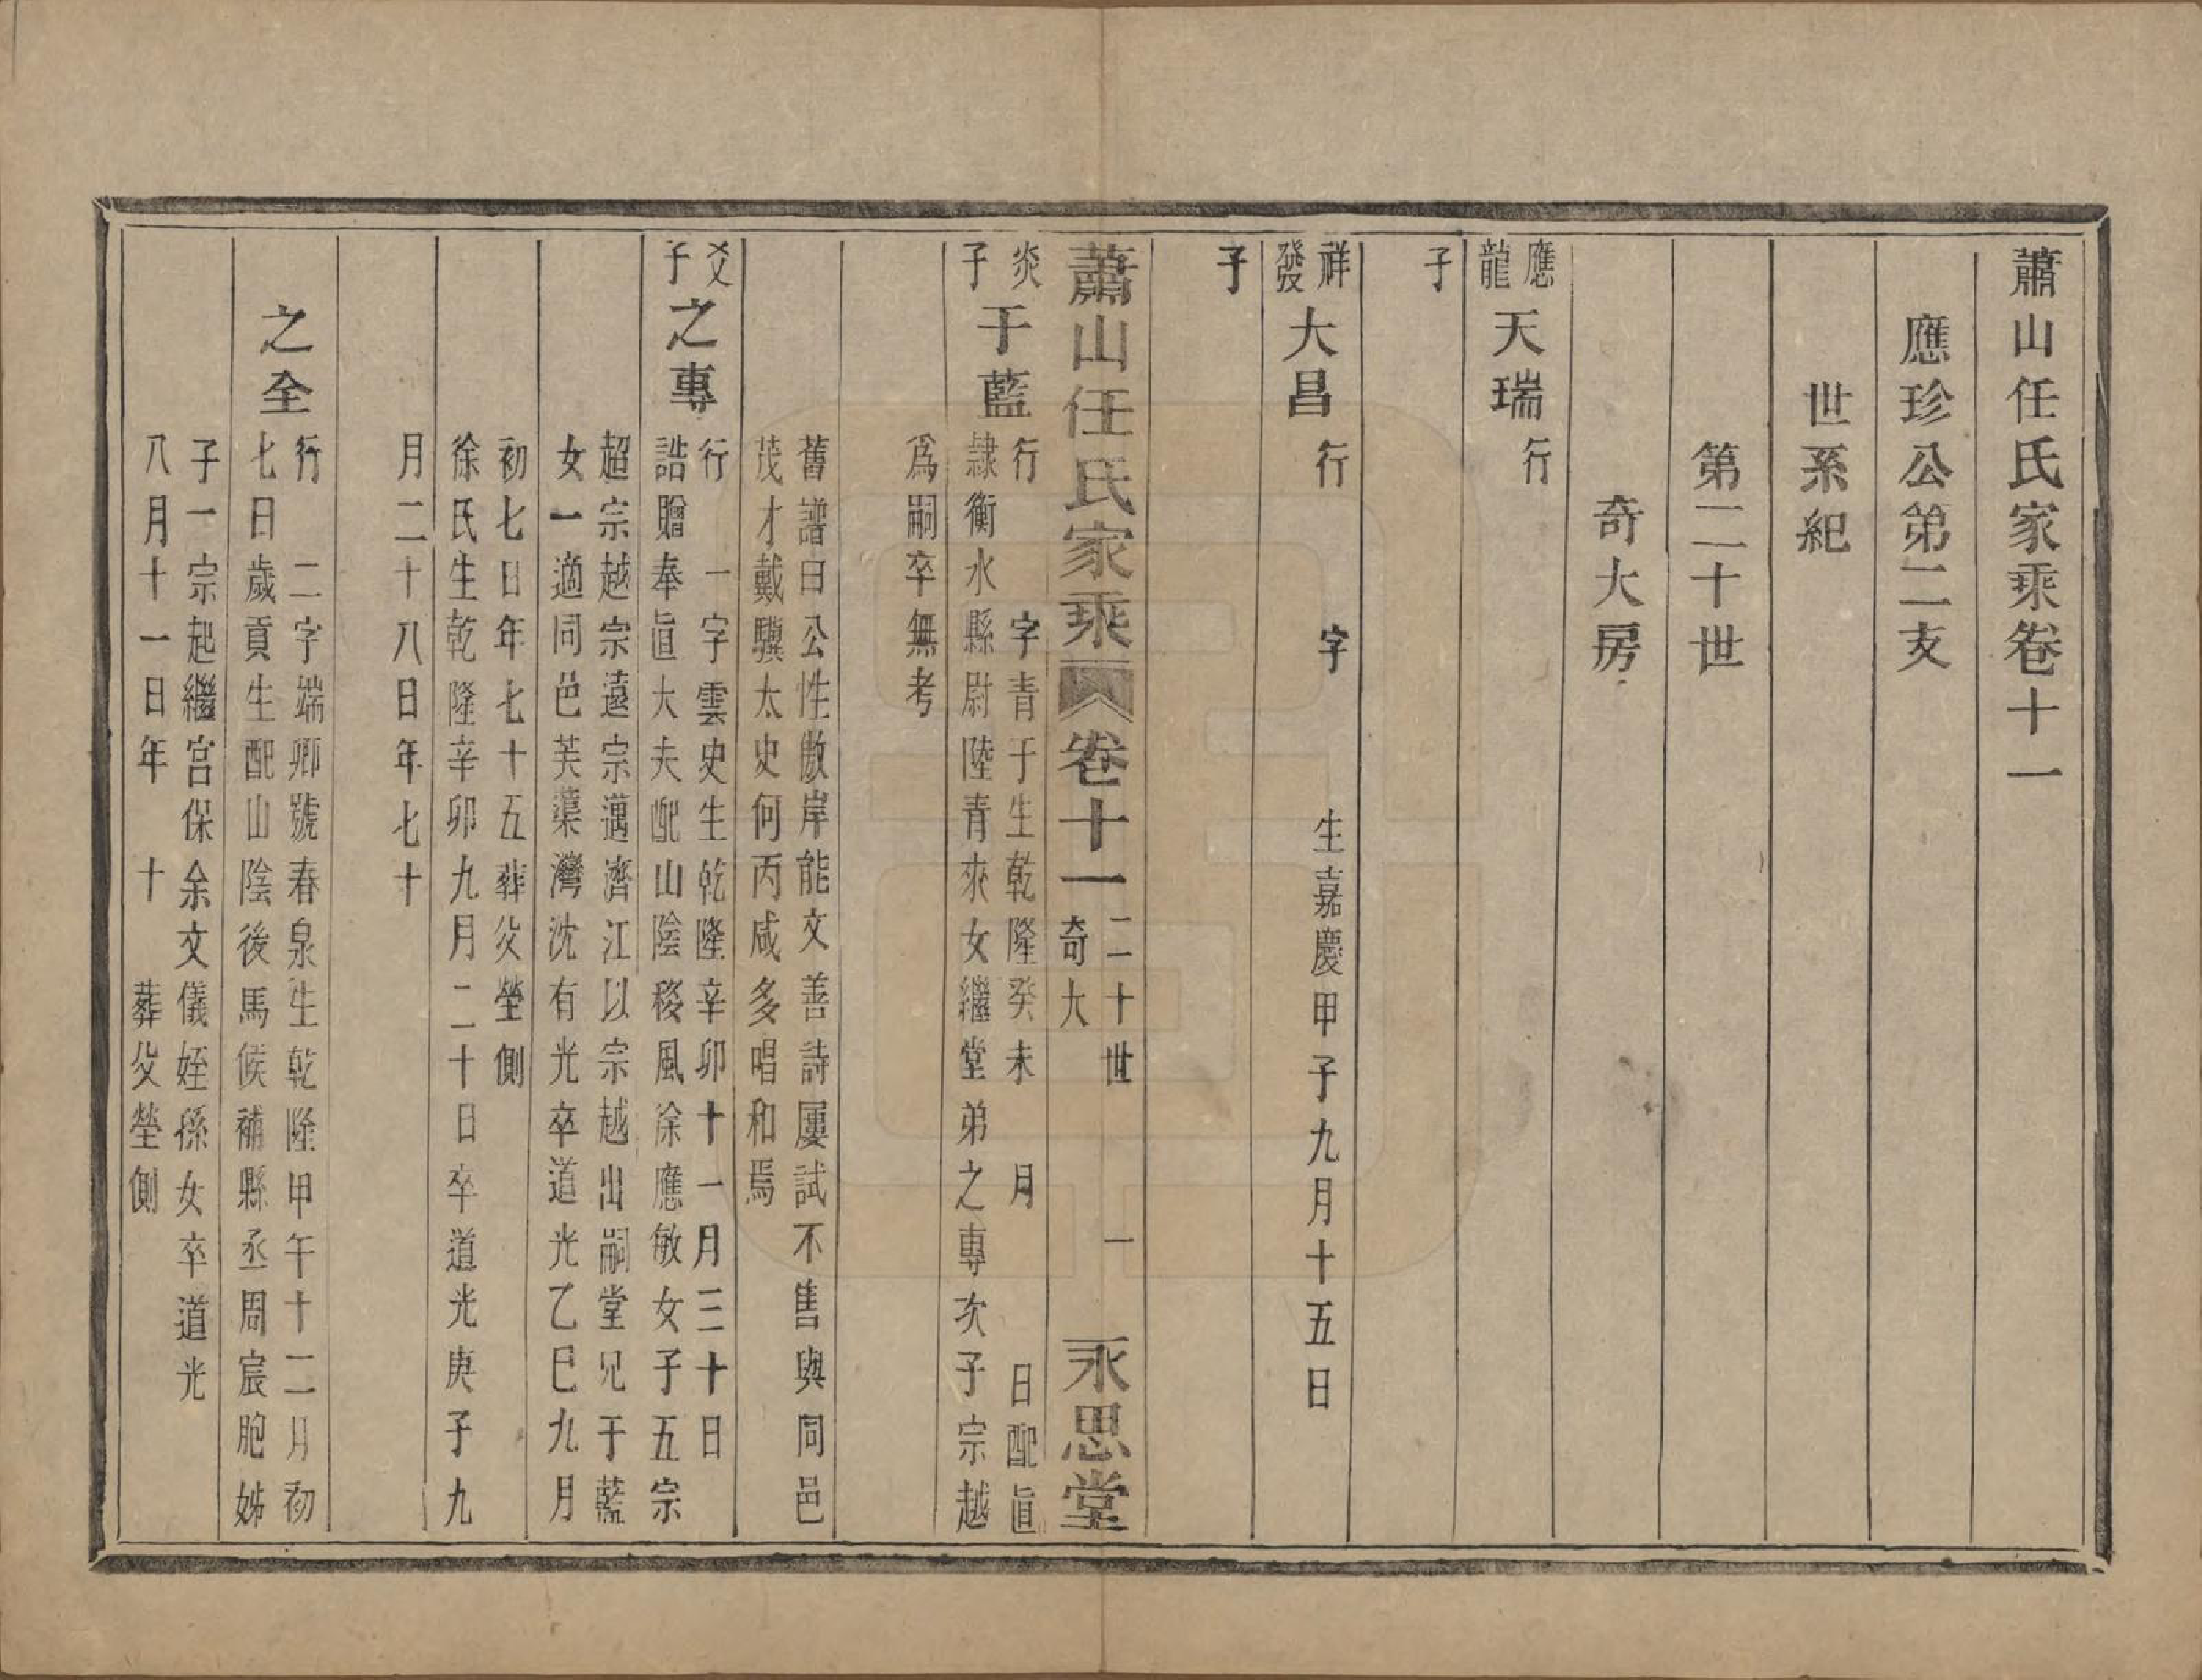 蕭山任氏家乘卷十一
應珍公第二支
世系紀
第二十世
奇大房
應龍子
天瑞
行
祥發子
大昌
行　字　生嘉慶甲子九月十五日
蕭山任氏家乘
卷十一
二十世
奇大
一
永思堂
炎子
于藍
行　字青于生乾隆癸未　月　日配眞
隷衡水縣尉陸青來女繼堂弟之專次子宗越
爲嗣卒無考
舊譜曰公性傲岸能文善詩屢試不售與同邑
茂才戴驥太史何丙咸多唱和焉
爻子
之專
行一字雲史生乾隆辛卯十一月三十日
誥贈奉直大夫配山陰移風徐應敏女子五宗
超宗越宗遠宗邁濟江以宗越出嗣堂兄于藍
女一適同邑芙蕖灣沈有光卒道光乙巳九月
初七日年七十五葬父塋側
徐氏生乾隆辛卯九月二十日卒道光庚子九
月二十八日年七十
之全
行二字端卿號春泉生乾隆甲午十二月初
七日歲貢生配山陰後馬候補縣丞周宸胞姊
子一宗起繼宮保余文儀姪孫女卒道光
八月十一日年　十　葬父塋側